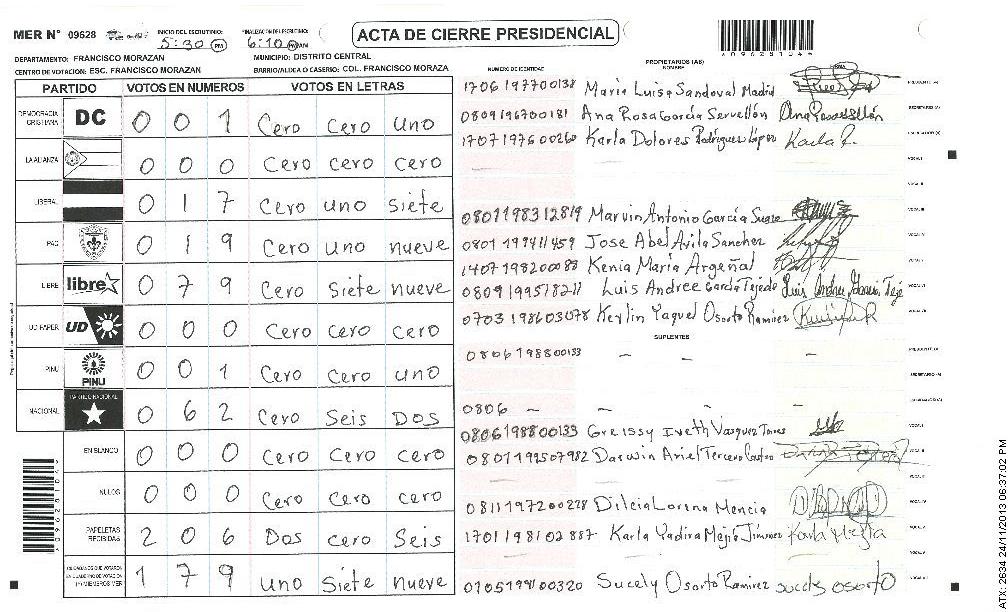 MER N° 09628 INICIO DEL ESCRUTINIO: 5:30 PM FINALIZACION DEL ESCRUTINIO: 6:10 PM AM
ACTA DE CIERRE PRESIDENCIAL
A09628104
DEPARTAMENTO: FRANCISCO MORAZAN MUNICIPIO: DISTRITO CENTRAL
CENTRO DE VOTACION: ESC. FRANCISCO MORAZAN BARRIO/ALDEA O CASERIO: COL. FRANCISCO MORAZA
PARTIDO VOTOS EN NUMEROS VOTOS EN LETRAS
DEMOCRACIA CRISTIANA DC 0 0 1 Cero Cero Uno
LA ALIANZA 0 0 0 Cero cero cero
LIBERAL 0 1 7 Cero uno siete
PAC 0 1 9 Cero Uno nueve
LIBRE libre 0 7 9 Cero Siete nueve
UD FAPER UD 0 0 0 Cero Cero Cero
PINU PINU 0 0 1 Cero Cero uno
NACIONAL PARTIDO NACIONAL 0 6 2 Cero Seis Dos
EN BLANCO 0 0 0 Cero Cero Cero
NULOS 0 0 0 Cero Cero cero
PAPELETAS RECIBIDAS 2 0 6 Dos cero Seis
CIUDADANOS QUE VOTARON EN CUADERNO DE VOTACION Y MIEMBROS MER 1 7 9 uno Siete nueve
NUMERO DE IDENTIDAD PROPIETARIOS (AS) NOMBRE FIRMA
1706197700138 Maria Luisa Sandoval Madrid PRESIDENTE (A)
0809196700181 Ana Rosa García Servellón Ana Rosa Servellón SECRETARIO (A)
1707197600260 Karla Dolores Rodríguez López Karla R. ESCRUTADOR (A)
VOCAL I
VOCAL II
0801198312819 Marvin Antonio García VOCAL III
0801 199411459 Jose Abel Avila Sanchez VOCAL IV
1407198200088 Kenia María Argeñal VOCAL V
0809199518211 Luis Andree García Tejeda VOCAL VI
0703198603078 Keylin Yaquel Osorto Ramirez VOCAL VII
SUPLENTES
0806198800133 – – PRESIDENTE (A)
SECRETARIO (A)
0806 – – –
0806198800133 Greissy Iveth Vasquez Torres VOCAL I
0801199507982 Darwin Ariel Tercero VOCAL II
VOCAL III
0811197200228 Dilcia Lorena Mencia VOCAL IV
1701198102887 Karla Yadira Mejía Jiménez Karla Mejía VOCAL V
0705198400320 Sucely Osorto Ramirez sucely osorto
ATX-2634 24/11/2013 06:37:02 PM